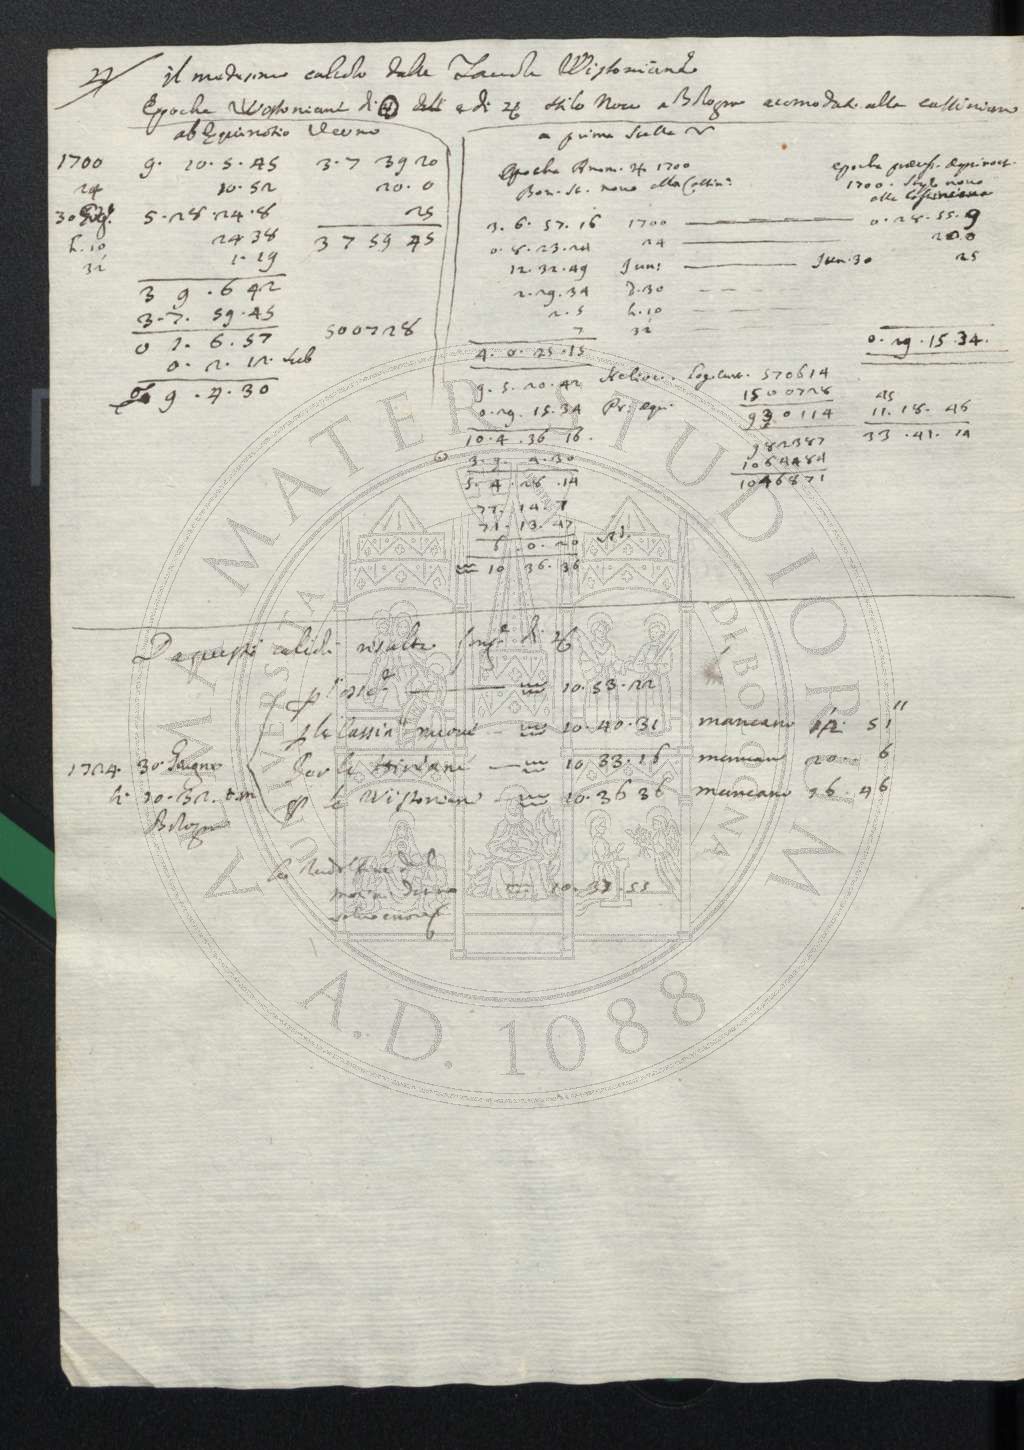 27 il medesimo calcolo dalle Tavole Wistoniane
Epoche Wistoniane di ☉ e di ♃ stilo Novo a Bologna acomodate alla cassiniana
ab Equinotio Verno
1700 9. 10. 5. 45 3. 7 39 20
24 10. 52 20. 0
30 Giug. 5. 28. 24. 8 25
h. 10 24 38 3 7 59 45
32 1. 19
3 9. 6 42
3. 7. 59. 45
0 1. 6. 57 500728
0. 2. 12. sub
9. 4. 30
a prima stella ♈
Epocha Anom. ♃ 1700
Bon. st. novo alla Cassin.
3. 6. 57. 16 1700
0. 8. 23. 24 24
12. 32. 49 Jun:
2. 29. 34 d. 30
2. 5 h. 10
7 32
4. 0. 25. 15
epocha præcess. Equinoct.
1700. stylo novo
alla Cassiniana
0. 28. 55. 9
20 0
Jun. 30 25
0. 29. 15. 34.
9. 5. 20. 42 Helioc.
0. 29. 15. 34 Pr. equi.
10. 4. 36 16.
3. 9. 4. 30
5. 4. 28. 14
77. 14. 7
71. 13. 47
6. 0. 20
♒ 10 36. 36
Log. 570614
1500728
930114
982387
1064484
1046871
45
11. 18. 46
33. 41. 14
Da questi calcoli risulta long.e di ♃
♒ 10. 53. 22
p le Cassin.e nuove ♒ 10. 40. 31 mancano 12. 51"
1724 30 Giugno
Per le ♒ 10. 33. 16 mancano 20 6
h. 10. 32. p.m
Bologna
p le Wistoniane ♒ 10. 36 36 mancano 16. 46
le Rudolfine
♒ 10. 37. 53
ALMA MATER STUDIORUM
A.D. 1088
UNIVERSITÀ DI BOLOGNA